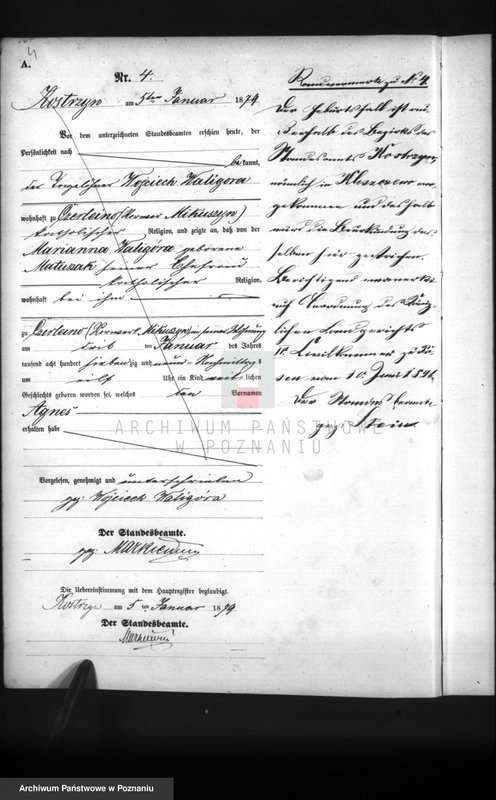 4
A.
Nr. 4.
Kostrzyn am 5ten Januar 1879
Vor dem unterzeichneten Standesbeamten erschien heute, der
Persönlichkeit nach
bekannt,
der Tagelöhner Wojciech Waligora
wohnhaft zu Czerleino (Vorwerk Mikuszyn)
katholischer Religion, und zeigte an, daß von der
Marianna Waligóra geborene
Matuszak seiner Ehefrau
katholischer Religion,
wohnhaft bei ihm
zu Czerleino (Vorwerk Mikuszyn) in seiner Wohnung
am ten Januar des Jahres
tausend acht hundert siebenzig und neun Nachmittags
um Uhr ein Kind weiblichen
Geschlechts geboren worden sei, welches den Vornamen
Agnes
erhalten habe
Vorgelesen, genehmigt und unterschrieben
gez. Wojciech Waligóra
Der Standesbeamte.
gez.
Die Uebereinstimmung mit dem Hauptregister beglaubigt.
Kostrzyn am 5ten Januar 1879
Der Standesbeamte.
Randvermerk zu N 4
Der Geburtsfall ist au
ßerhalb des Bezirks des
Standesamts Kostrzyn
nämlich in vor
gekommen und deshalb
wird die Beurkundung des
selben hier gestrichen.
Berichtigend vermerkt
auf Anordnung des König
lichen Landgerichts
II Civilkammer zu Po
sen vom 10. Juni
Der Standesbeamte
gez. Stein
ARCHIWUM PAŃSTWOWE
W POZNANIU
Archiwum Państwowe w Poznaniu